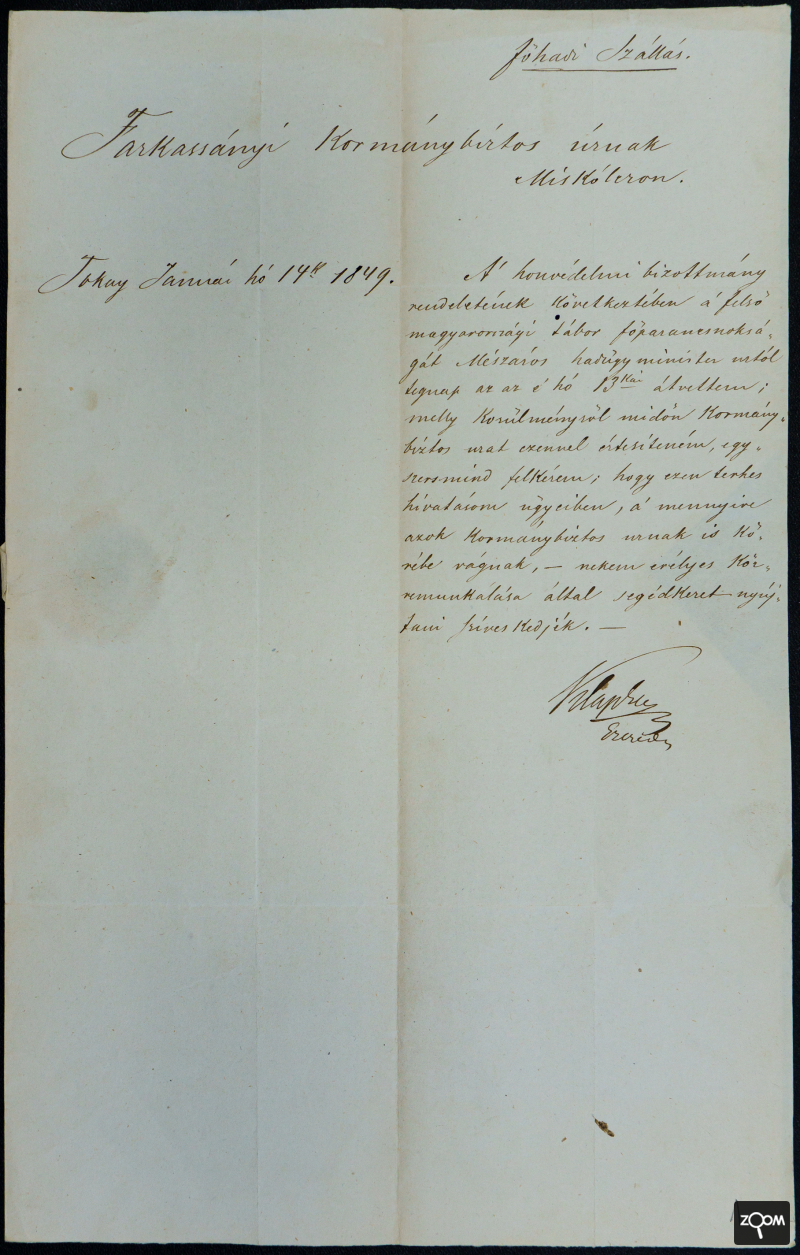 főhadi Szállás.
Farkassányi Kormánybiztos úrnak
Miskólczon.
Tokay Januái hó 14k 1849.
A' honvédelmi bizottmány
rendeletének következtében á felső
magyarországi tábor főparancsnoksá-
gát Mészáros hadügyminister urtól
tegnap az az é hó 13kai átvettem;
melly körülményröl midőn Kormány-
biztos urat ezennel értesiteném, egy-
szersmind felkérem; hogy ezen terhes
hivatásom ügyeiben, á mennyire
azok Kormánybiztos urnak is kö-
rébe vágnak, — nekem erélyes köz-
remunkálása által segédkezet nyúj-
tani szíveskedjék. —
Klapka
Ezredes
ZOOM